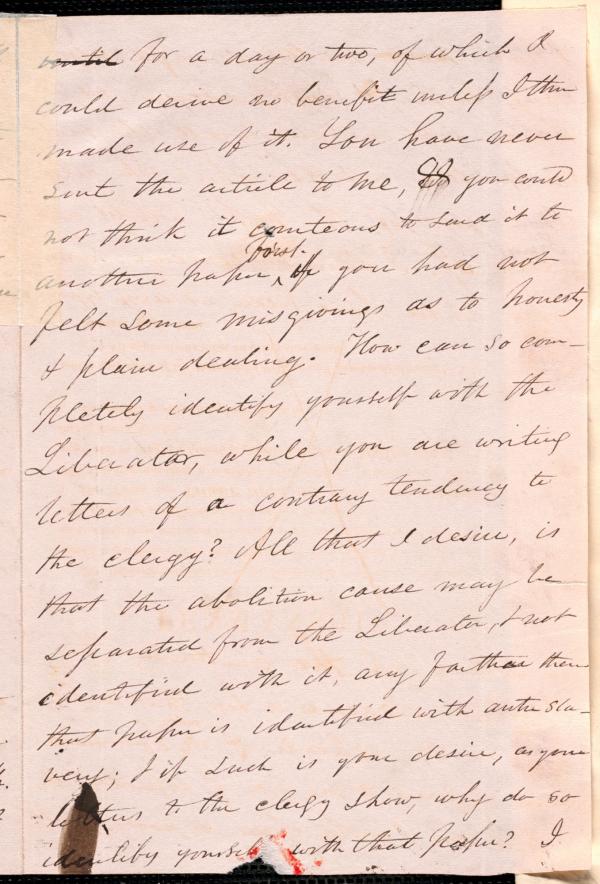 until for a day or two, of which I
could derive no benefit unless I then
made use of it. You have never
sent the article to me, & you could
not think it courteous to send it to
first
another paper, if you had not
felt some misgivings as to honesty
& plain dealing. How can so com-
pletely identify yourself with the
Liberator, while you are writing
letters of a contrary tendency to
the clergy? All that I desire, is
that the abolition cause may be
separated from the Liberator, & not
identified with it, any farther than
that paper is identified with anti sla-
very; & if such is your desire, as your
letters to the clergy show, why do so
identify yourself with that paper? I